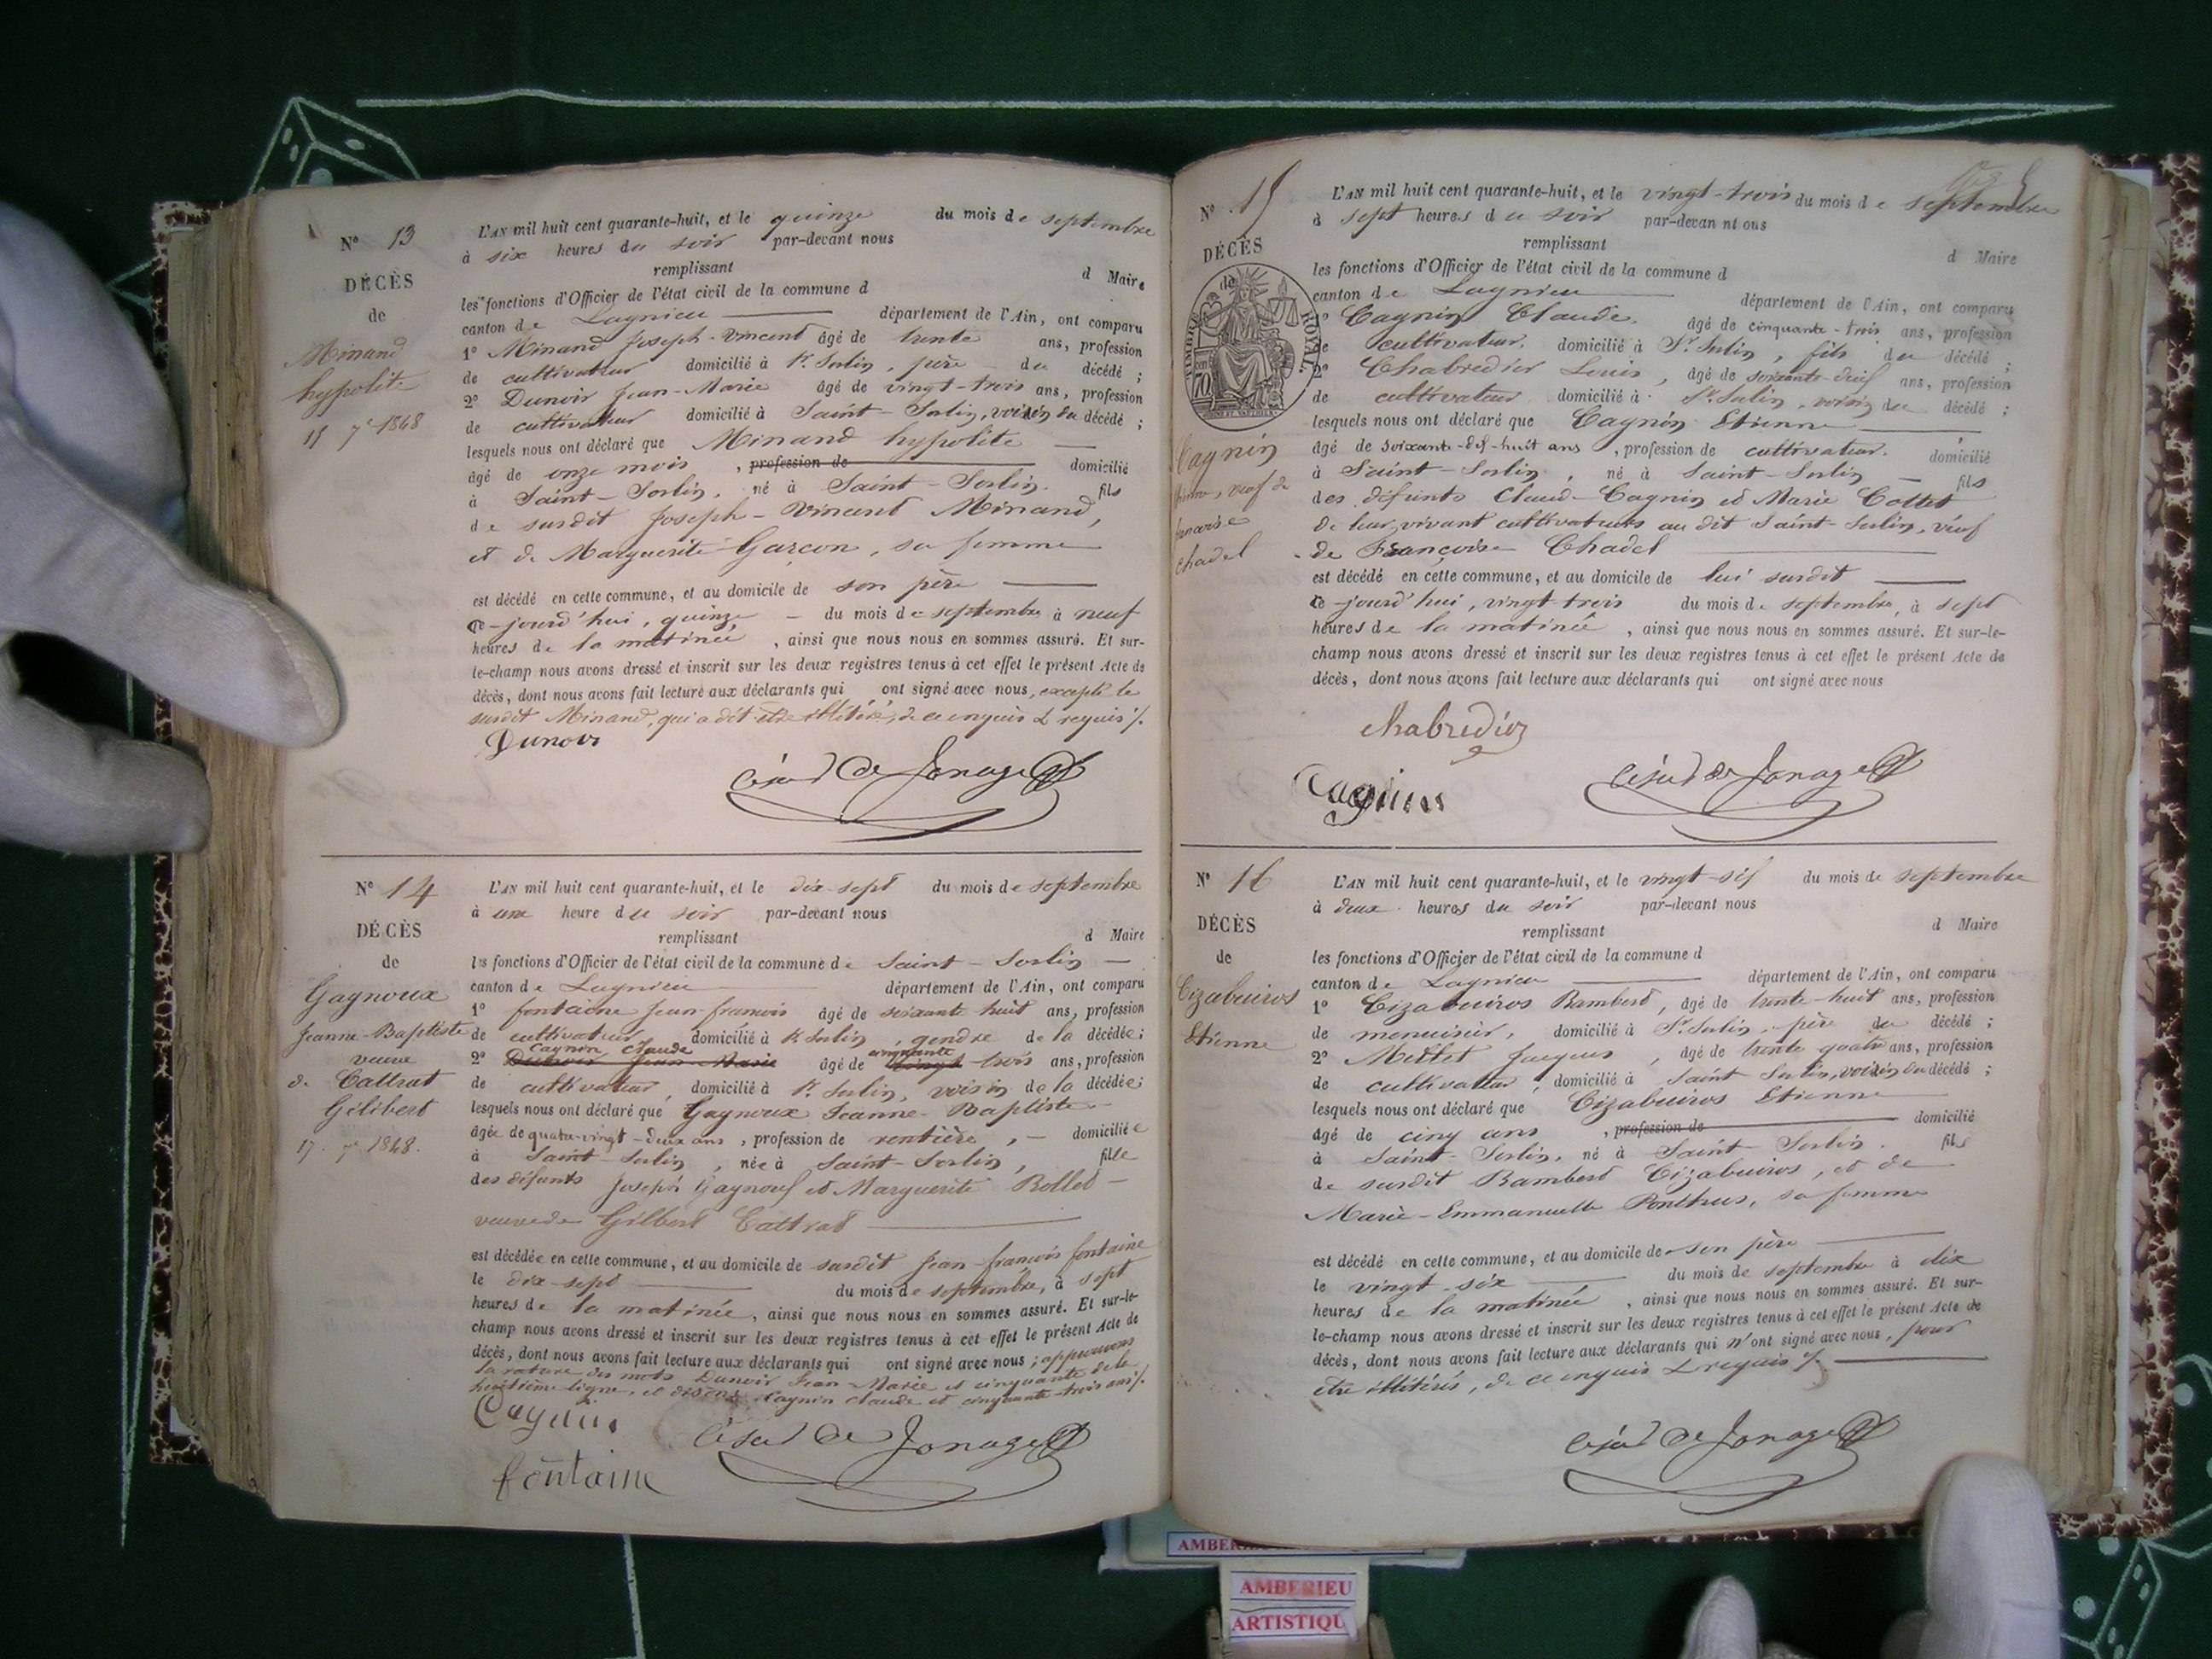 N° 13
DÉCÈS
de
Minand
hypolite
15 7e 1848
L'AN mil huit cent quarante-huit, et le quinze du mois de septembre
à six heures du soir par-devant nous
remplissant d Maire
les fonctions d'Officier de l'état civil de la commune d
canton de Lagnieu département de l'Ain, ont comparu
1° Minand Joseph-Vincent âgé de trente ans, profession
de cultivateur domicilié à St Sorlin, père du décédé ;
2° Dunoir Jean-Marie âgé de vingt-trois ans, profession
de cultivateur domicilié à Saint-Sorlin, voisin du décédé ;
lesquels nous ont déclaré que Minand hypolite
âgé de onze mois , profession de domicilié
à Saint-Sorlin, né à Saint-Sorlin. fils
de susdit Joseph-Vincent Minand,
et de Marguerite Garçon, sa femme
est décédé en cette commune, et au domicile de son père
ce-jourd'hui, quinze du mois de septembre à neuf
heures de la matinée , ainsi que nous nous en sommes assuré. Et sur-
le-champ nous avons dressé et inscrit sur les deux registres tenus à cet effet le présent Acte de
décès, dont nous avons fait lecture aux déclarants qui ont signé avec nous, excepté le
susdit Minand, qui a dit être illitéré, de ce enquis & requis ./.
Dunoir
César de Jonage
N° 14
DÉCÈS
de
Gagnoux
Jeanne-Baptiste
veuve
de Cattrat
Gilibert
17. 7e 1848.
L'AN mil huit cent quarante-huit, et le dix-sept du mois de septembre
à une heure du soir par-devant nous
remplissant d Maire
les fonctions d'Officier de l'état civil de la commune de Saint-Sorlin
canton de Lagnieu département de l'Ain, ont comparu
1° fontaine Jean-francois âgé de soixante huit ans, profession
de cultivateur domicilié à St Sorlin, gendre de la décédée ;
Cagnin Claude cinquante
2° Dunoir Jean-Marie âgé de vingt-trois ans, profession
de cultivateur, domicilié à St Sorlin, voisin de la décédée ;
lesquels nous ont déclaré que Gagnoux Jeanne-Baptiste
âgée de quatre-vingt-deux ans , profession de rentière , domiciliée
à Saint-Sorlin , née à Saint-Sorlin, fille
des défunts Joseph Gagnoux et Marguerite Rollet
veuve de Gilbert Cattrat
est décédée en cette commune, et au domicile de susdit Jean-françois fontaine
le dix-sept du mois de septembre, à sept
heures de la matinée, ainsi que nous nous en sommes assuré. Et sur-le-
champ nous avons dressé et inscrit sur les deux registres tenus à cet effet le présent Acte de
décès, dont nous avons fait lecture aux déclarants qui ont signé avec nous ; approuvons
la rature des mots Dunoir Jean-Marie et cinquante de la
huitième ligne, Cagnin Claude et cinquante-trois ans ./.
Cagnin
fontaine
César de Jonage
N° 15
DÉCÈS
de
TIMBRE ROYAL
70
Cagnin
veuf de
Chadel
L'AN mil huit cent quarante-huit, et le vingt-trois du mois de septembre
à sept heures du soir par-devan nt ous
remplissant d Maire
les fonctions d'Officier de l'état civil de la commune d
canton de Lagnieu département de l'Ain, ont comparu
1° Cagnin Claude, âgé de cinquante-trois ans, profession
de cultivateur, domicilié à St Sorlin, fils du décédé ;
2° Chabredier Louis, âgé de soixante-deux ans, profession
de cultivateur domicilié à St Sorlin, voisin du décédé ;
lesquels nous ont déclaré que Cagnin Etienne
âgé de soixante-dix-huit ans , profession de cultivateur. domicilié
à Saint-Sorlin , né à Saint-Sorlin fils
des défunts Claude Cagnin et Marie Cottet
de leur vivant cultivateurs au dit Saint-Sorlin, veuf
de Françoise Chadel
est décédé en cette commune, et au domicile de lui susdit
ce-jourd'hui, vingt-trois du mois de septembre, à sept
heures de la matinée , ainsi que nous nous en sommes assuré. Et sur-le-
champ nous avons dressé et inscrit sur les deux registres tenus à cet effet le présent Acte de
décès, dont nous avons fait lecture aux déclarants qui ont signé avec nous
Chabredier
Cagnin
César de Jonage
N° 16
DÉCÈS
de
Cizabuiros
Etienne
L'AN mil huit cent quarante-huit, et le vingt-six du mois de septembre
à deux heures du soir par-devant nous
remplissant d Maire
les fonctions d'Officier de l'état civil de la commune d
canton de Lagnieu département de l'Ain, ont comparu
1° Cizabuiros Rambert, âgé de trente-huit ans, profession
de menuisier, domicilié à St Sorlin, père du décédé ;
2° Mellet Jacques , âgé de trente quatre ans, profession
de cultivateur, domicilié à Saint Sorlin, voisin du décédé ;
lesquels nous ont déclaré que Cizabuiros Etienne
âgé de cinq ans , profession de domicilié
à Saint-Sorlin, né à Saint-Sorlin. fils
de susdit Rambert Cizabuiros, et de
Marie-Emmanuelle Ponthus, sa femme
est décédé en cette commune, et au domicile de son père
le vingt-six du mois de septembre à dix
heures de la matinée , ainsi que nous nous en sommes assuré. Et sur-
le-champ nous avons dressé et inscrit sur les deux registres tenus à cet effet le présent Acte de
décès, dont nous avons fait lecture aux déclarants qui n'ont signé avec nous, pour
être illitérés, de ce enquis & requis ./.
César de Jonage
AMBERIEU
ARTISTIQU